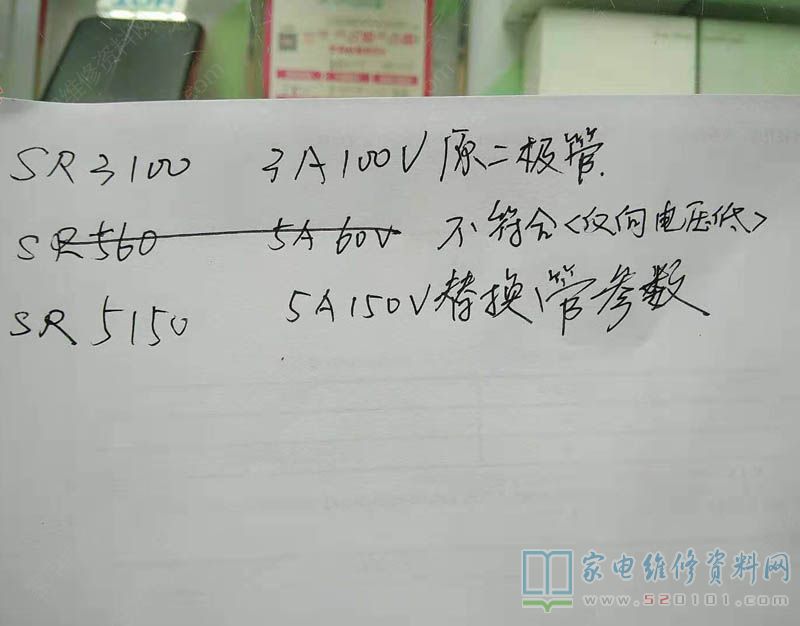 SR3100 3A100V 原二极管.
SR560 5A60V 不符合<仅向电压低>
SR5150 5A150V 替换管参数
家电维修资料网
www.520101.com